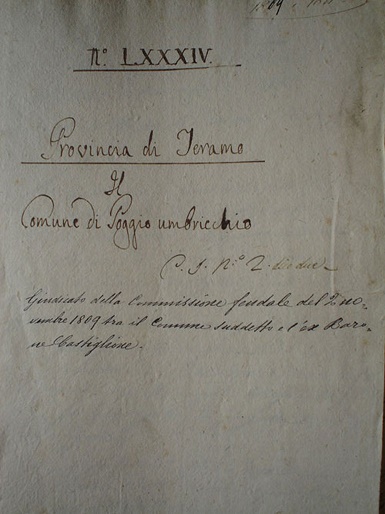 N.º LXXXIV.
Provincia di Teramo
Il
Comune di Poggio umbricchio
N.º 2.
Giudicato della Commissione feudale del 2 no-
vembre 1809 tra il Comune suddetto e l'ex Baro-
ne Castiglione.